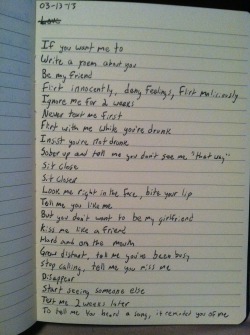 03-13-13
Love
If you want me to
Write a poem about you
Be my friend
Flirt innocently, deny feelings, flirt maliciously
Ignore me for 2 weeks
Never text me first
Flirt with me while you're drunk
Insist you're not drunk
Sober up and tell me you don't see me "that way"
Sit close
Sit closer
Look me right in the face, bite your lip
Tell me you like me
But you don't want to be my girlfriend
Kiss me like a friend
Hard and on the mouth
Grow distant, tell me you've been busy
Stop calling, tell me you miss me
Disappear
Start seeing someone else
Text me 2 weeks later
To tell me you heard a song, it reminded you of me